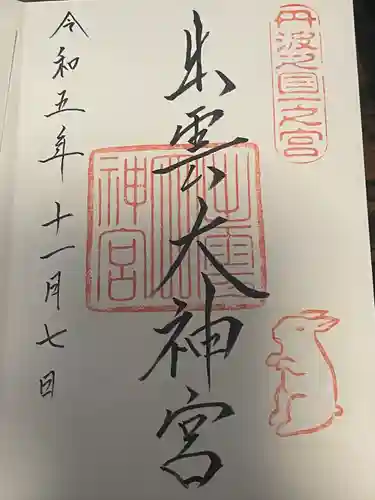 丹波之國一之宮
出雲大神宮
令和五年十一月七日